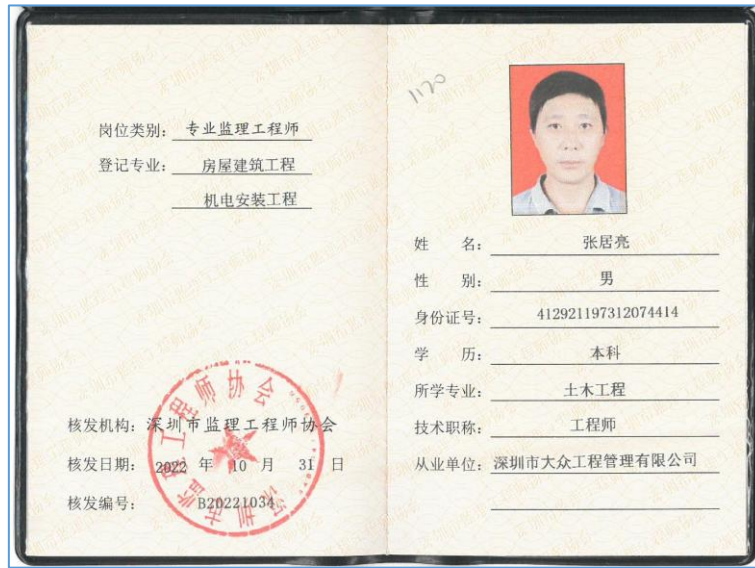 岗位类别: 专业监理工程师
登记专业: 房屋建筑工程
机电安装工程
核发机构: 深圳市监理工程师协会
核发日期: 2022 年 10 月 31 日
核发编号: B20221034
深圳市监理工程师协会
1170
姓 名: 张居亮
性 别: 男
身份证号: 412921197312074414
学 历: 本科
所学专业: 土木工程
技术职称: 工程师
从业单位: 深圳市大众工程管理有限公司